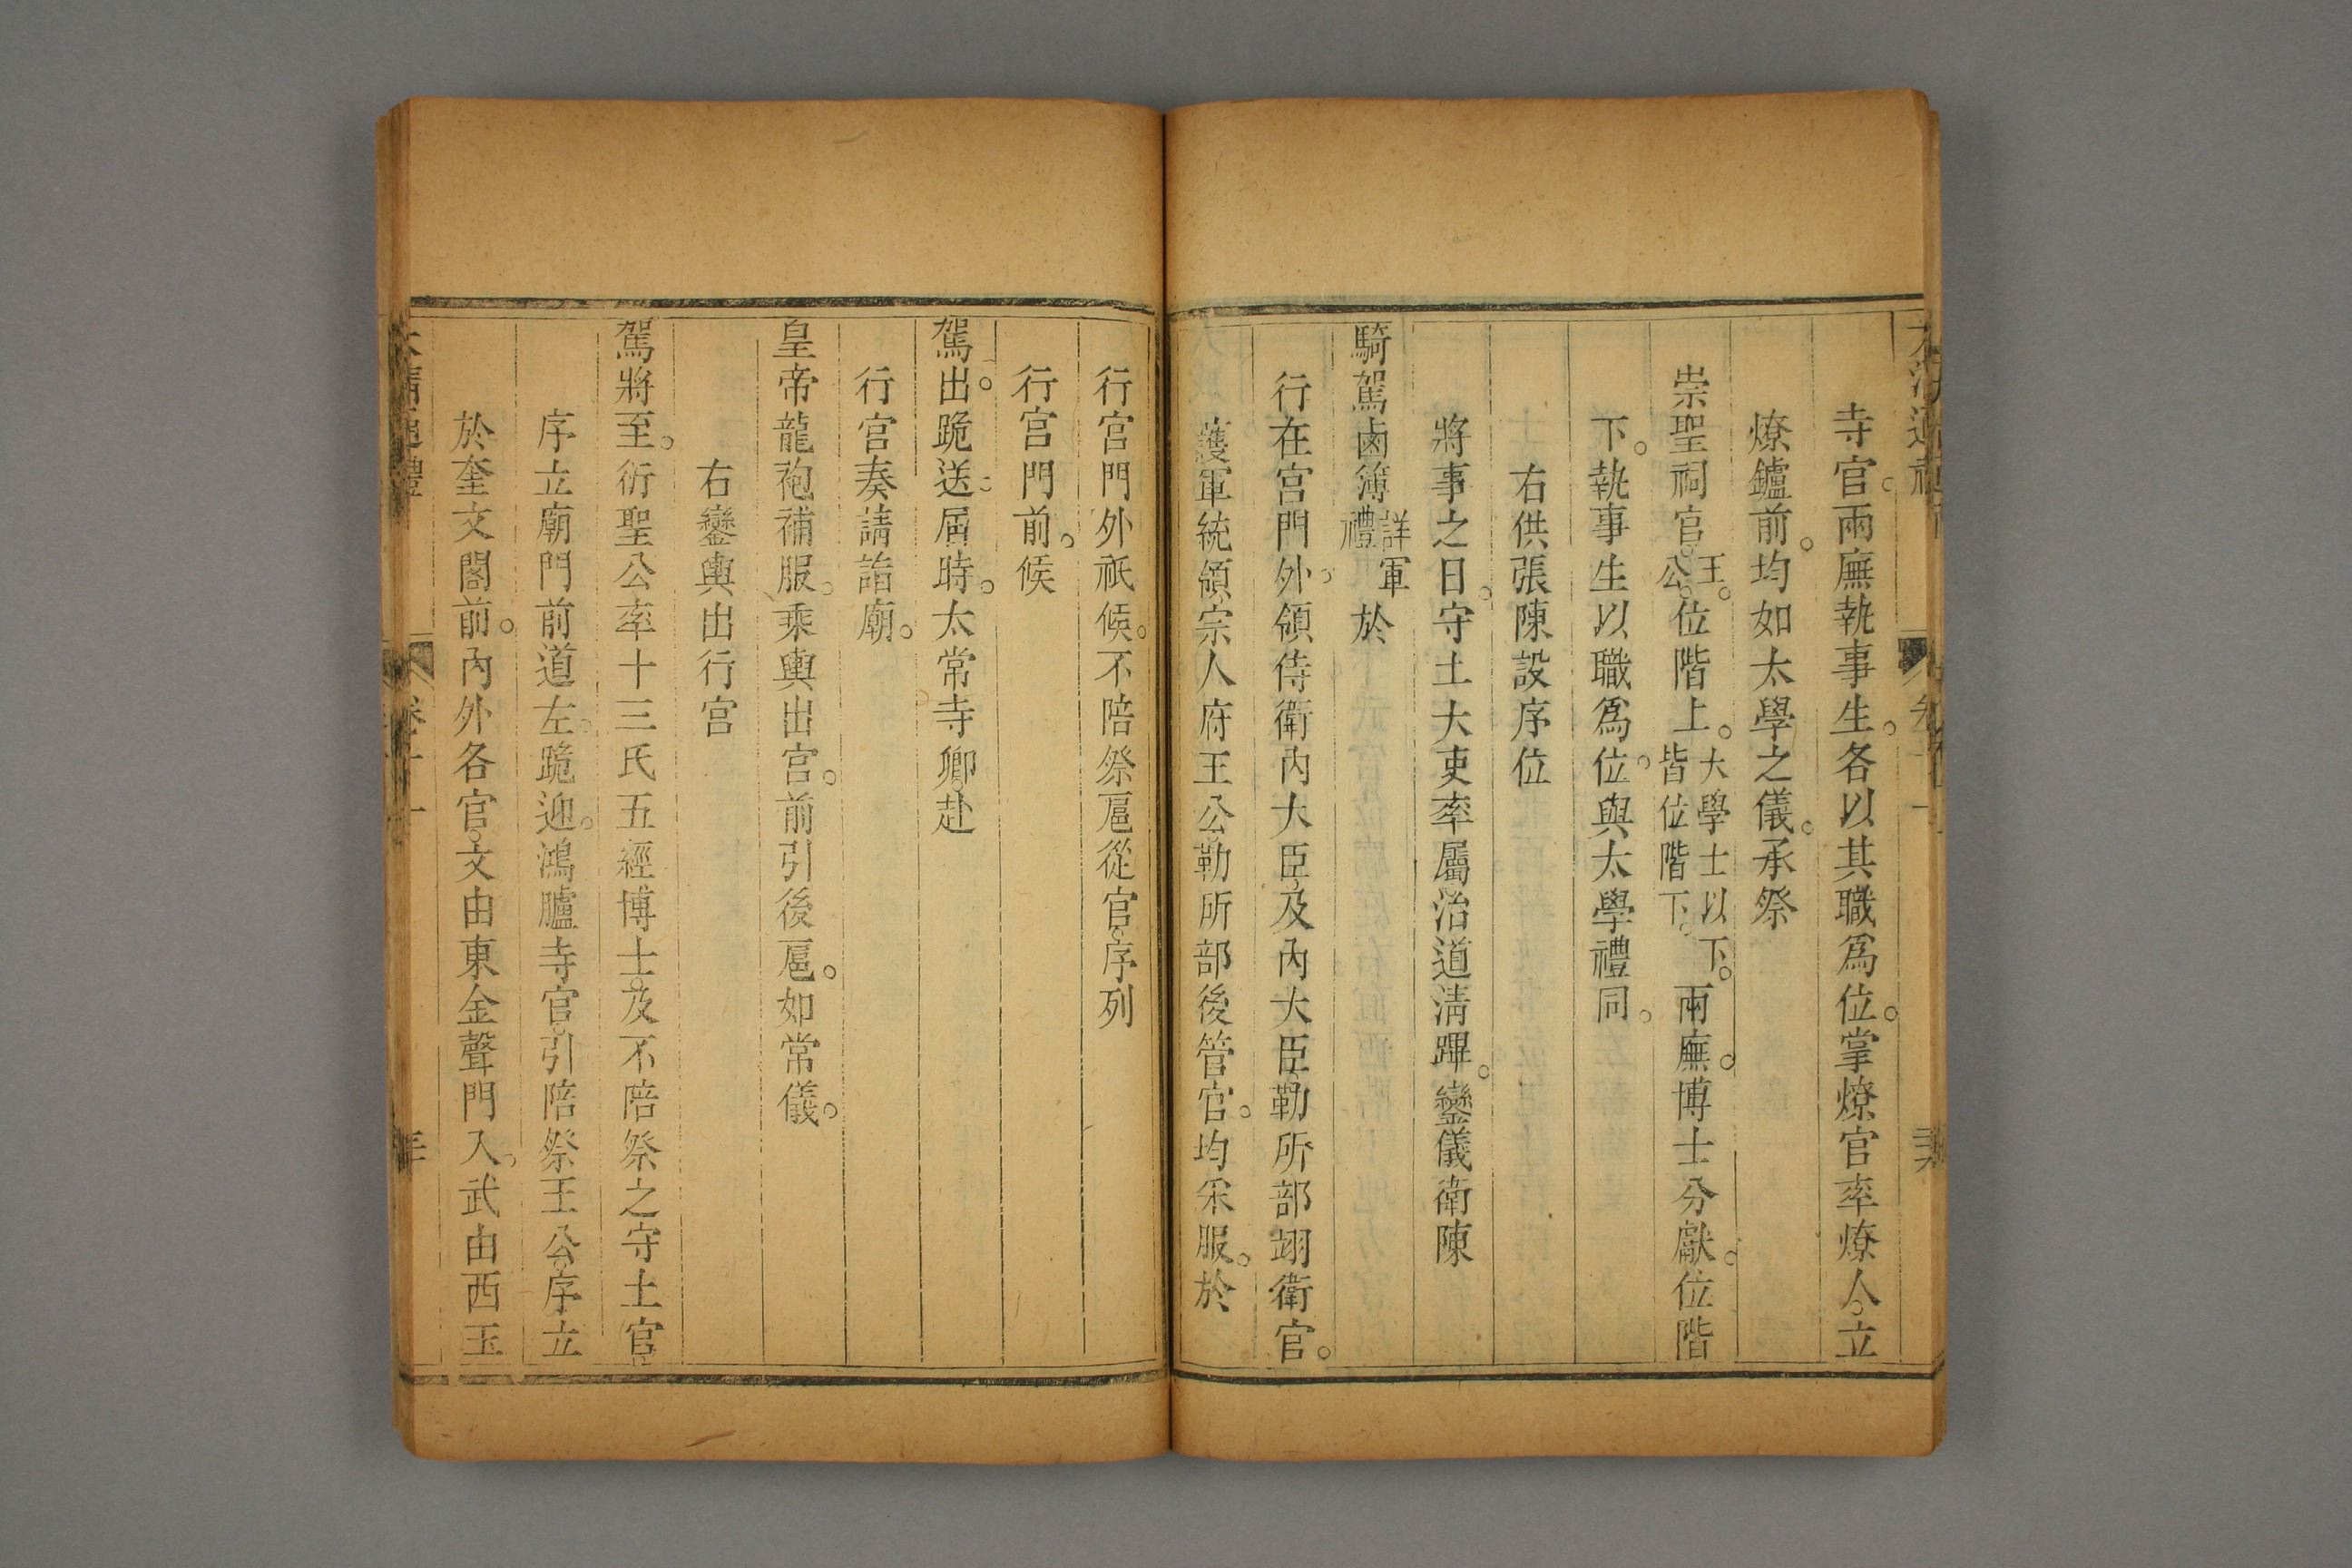 寺官。兩廡執事生。各以其職爲位。掌燎官率燎人。立
燎鑪前。均如太學之儀。承祭
崇聖祠官。王。公。位階上。大學士以下。皆位階下。兩廡。博士分獻。位階
下。執事生以職爲位。與太學禮同。
右供張陳設序位
將事之日。守土大吏率屬治道淸蹕。鑾儀衛陳
騎駕鹵簿詳軍禮於
行在宮門外。領侍衛內大臣。及內大臣。勒所部翊衛官。
護軍統領宗人府王公。勒所部後管官。均采服。於
行宮門外祇候。不陪祭扈從官。序列
行宮門前。候
駕出。跪送。屆時。太常寺卿。赴
行宮奏請詣廟。
皇帝龍袍補服。乘輿出宮。前引後扈。如常儀。
右鑾輿出行宮
駕將至。衍聖公率十三氏五經博士。及不陪祭之守土官。
序立廟門前道左。跪迎。鴻臚寺官。引陪祭王公。序立
於奎文閣前。內外各官。文由東金聲門入。武由西玉
大清通禮 卷十一